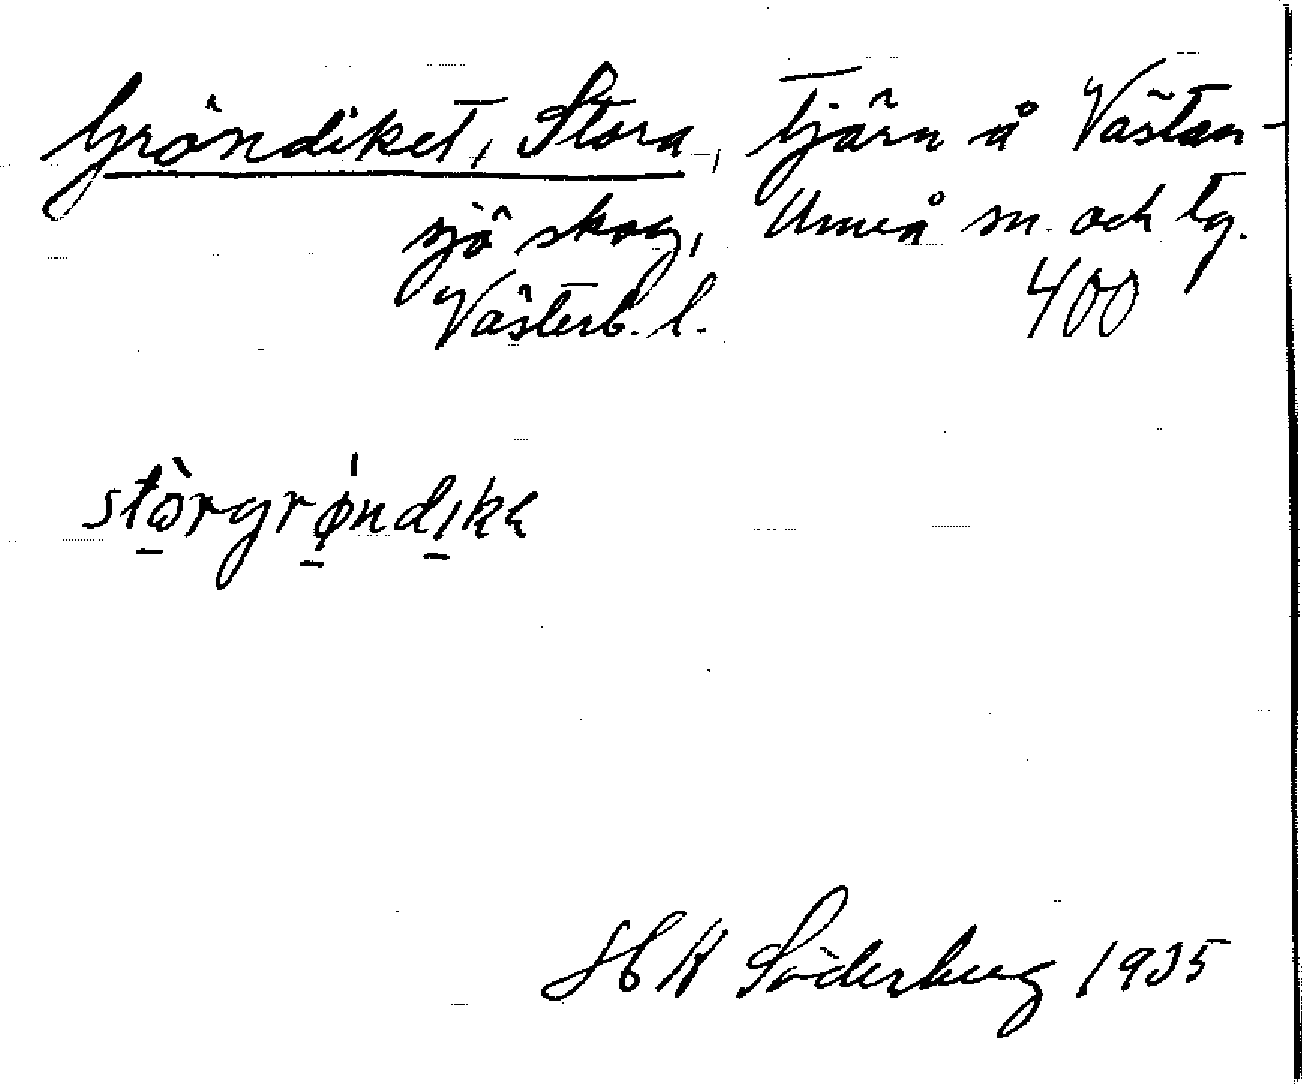 Gröndiket, Stora, Tjärn å Västan-
sjö skog, Umeå sn och tg.
Västerb. l. 400
stòrgrøndikɛ
H K Söderberg 1935